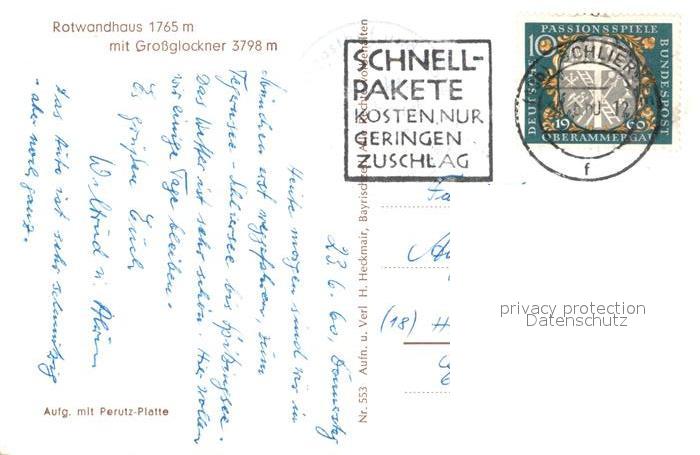 Rotwandhaus 1765 m
mit Großglockner 3798 m
SCHNELL-
PAKETE
KOSTEN NUR
GERINGEN
ZUSCHLAG
DEUTSCHE
10
PASSIONSSPIELE
BUNDESPOST
1960
OBERAMMERGAU
SCHLIER
f
23.6.60, Donnerstag
Heute morgen sind wir in
München erst weggefahren, zum
Tegernsee - Schliersee bis Spitzingsee.
Das Wetter ist sehr schön. Hier wollen
wir einige Tage bleiben.
Es grüßen Euch
Wiltrud u.
Das Auto ist sehr schmutzig
- aber noch ganz.
Nr. 553 Aufn. u. Verl H. Heckmair, Bayrischzell
(18) H
privacy protection
Datenschutz
Aufg. mit Perutz-Platte